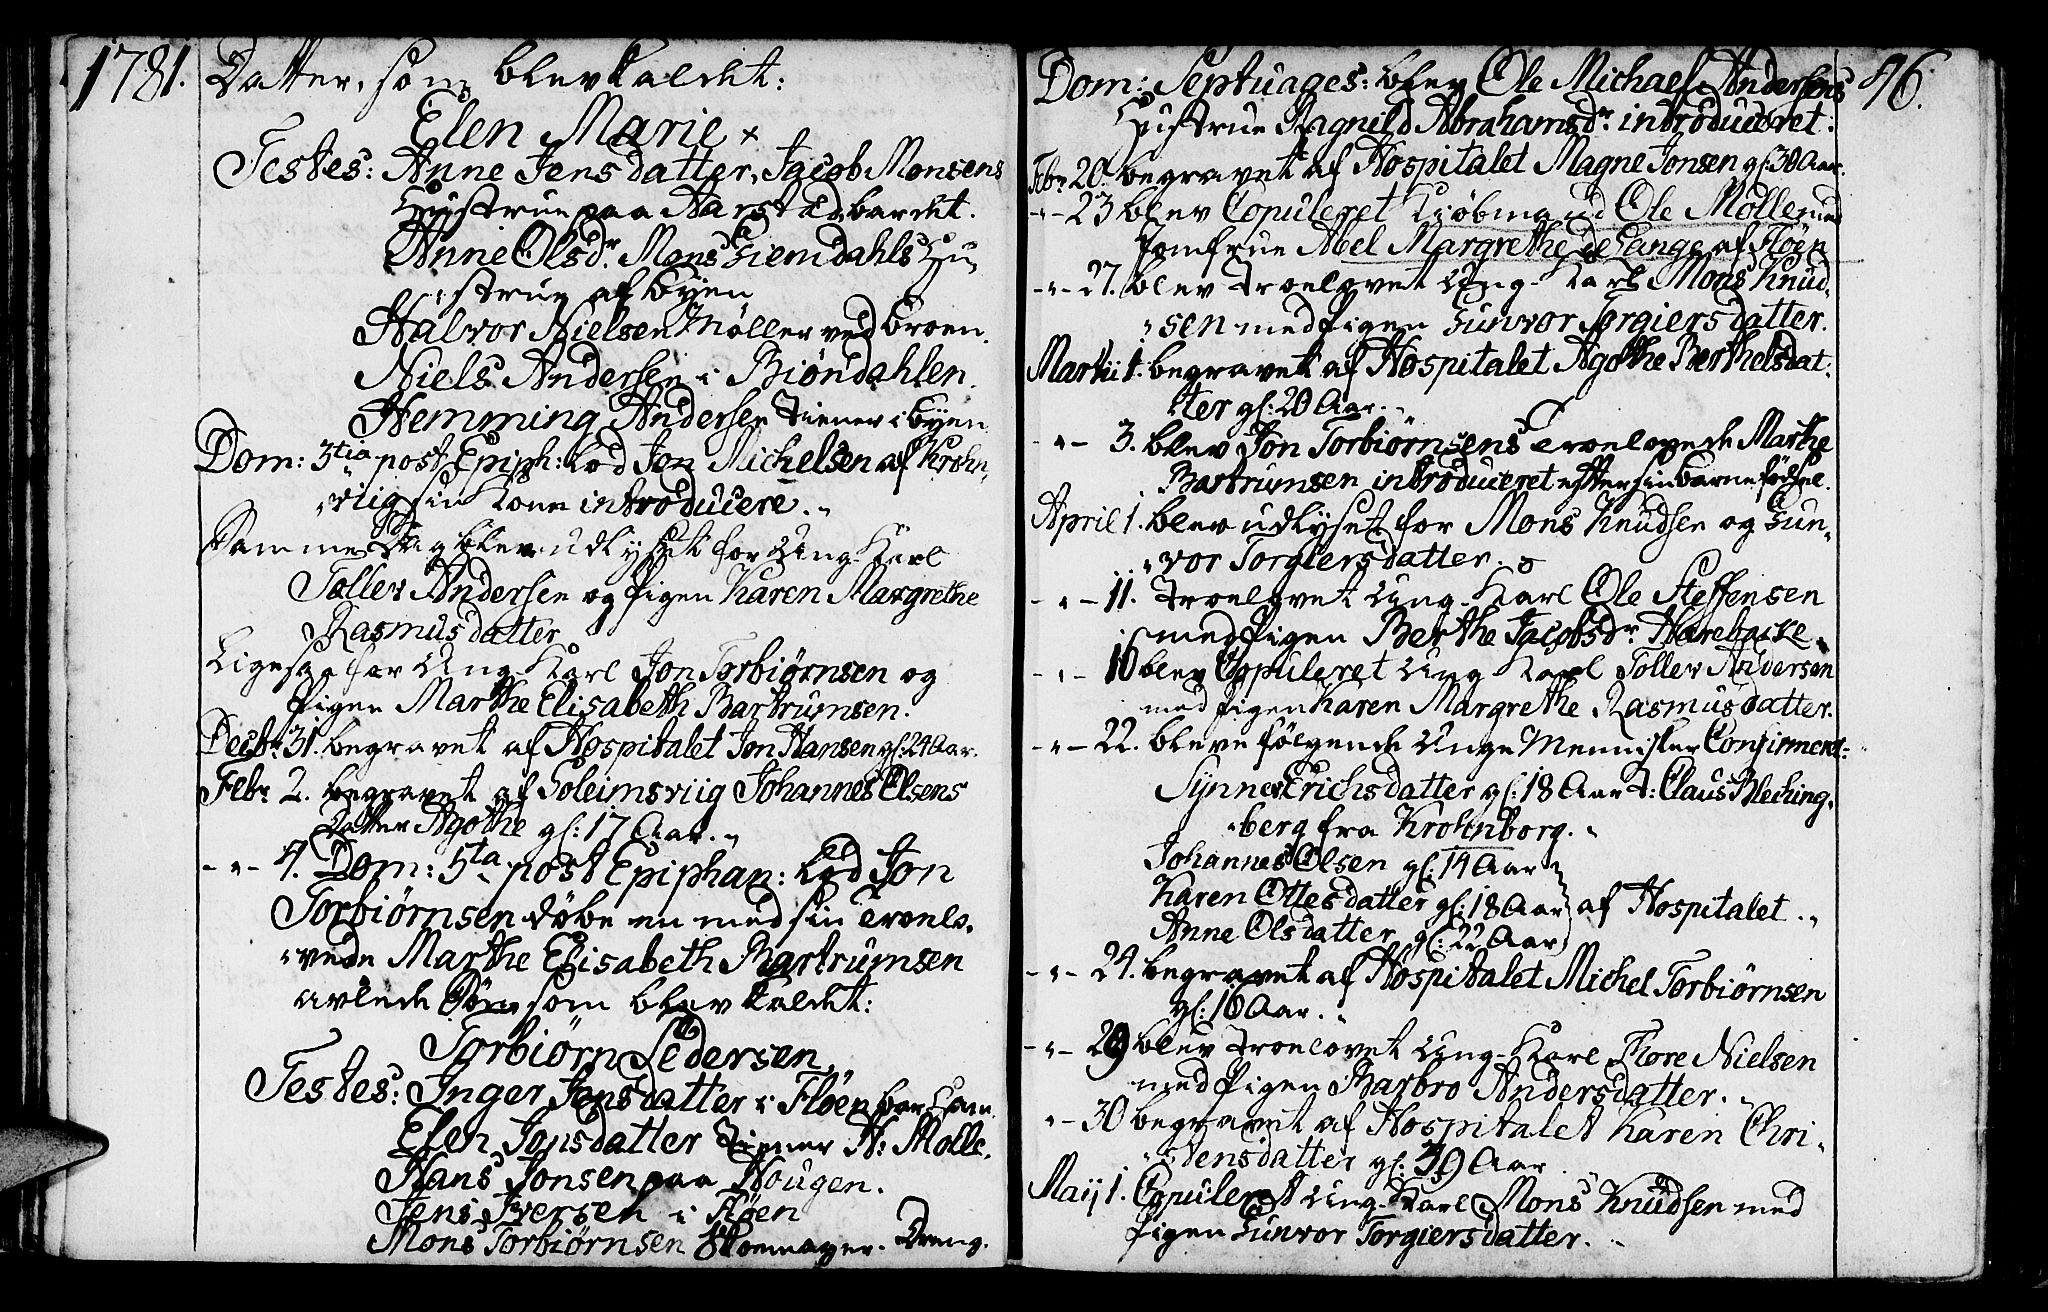 1781. Datter, som blev kaldet:
Elen Marie
Testes: Anne Jensdatter, Jacob Monsens
Hustrue paa Aarstad bar det.
Anne Olsdr. Mons Giemdahls Hu-
strue af Byen
Halvor Nielsen Møller ved Broen.
Niels Andersen i Biøndahlen.
Hemming Andersen tiener i Byen
Dom: 3tia post Epiph: lod Jon Michelsen af Krohn-
viig sin Kone introducere.
Samme Dag blev udlyset for Ung-Karl
Toller Andersen og Pigen Karen Margrethe
Rasmusdatter
Ligesaa for Ung-Karl Jon Torbiørnsen og
Pigen Marthe Elisabeth Bartrumsen.
Decbr. 31. begravet af Hospitalet Jon Hansen gl: 24 Aar.
Febr. 2. begravet af Soleimsviig Johannes Olsens
Datter Agothe gl: 17 Aar.
- " - 4. Dom: 5ta post Epiphan: lod Jon
Torbiørnsen døbe en med sin Troelo-
vede Marthe Elisabeth Bartrumsen
avlede Søn som blev kaldet:
Torbiørn Pedersen
Testes: Inger Jonsdatter i Fløen bar Barn
Elen Jonsdatter tiener H: Molle.
Hans Jonsen paa Hougen.
Jens Iversen i Fløen
Mons Torbiørnsen Skoemager-Dreng.
46.
Dom: Septuages: blev Ole Michael Andersens
Hustrue Ragnild Abrahamsdr. introduceret.
Febr. 20. begravet af Hospitalet Magne Jonsen gl: 30 Aar.
- " - 23 blev Copuleret Kiøbmand Ole Molle med
Jomfrue Abel Margrethe de Lange af Fløen
- " - 27. blev troelovet Ung-Karl Mons Knud-
sen med Pigen Gunvor Torgiersdatter.
Martii 1. begravet af Hospitalet Agothe Berthelsdat-
ter gl: 20 Aar.
- " - 3. blev Jon Torbiørnsens Troelovede Marthe
Bartrumsen introduceret efter sin Barnefødsel.
April 1. blev udlyset for Mons Knudsen og Gun-
vor Torgiersdatter.
- " - 11. troelovet Ung-Karl Ole Steffensen
med Pigen Berthe Jacobsdr. Harebakke.
- " - 16 blev Copuleret Ung Karl Toller Andersen
med Pigen Karen Margrethe Rasmusdatter.
- " - 22. bleve følgende Unge Mennisker Confirmeret:
Synneve Erichsdatter gl: 18 Aar T: Claus Bleching-
berg fra Krohnborg.
Johannes Olsen gl: 14 Aar
Karen Ottesdatter gl: 18 Aar af Hospitalet.
Anne Olsdatter gl: 22 Aar
- " - 24. begravet af Hospitalet Michel Torbiørnsen
gl: 16 Aar.
- " - 29 blev troelovet Ung-Karl Tore Nielsen
med Pigen Barbro Andersdatter.
" - 30 begravet af Hospitalet Karen Chri-
stensdatter gl: 39 Aar.
Maij 1. Copuleret Ung-Karl Mons Knudsen med
Pigen Gunvor Torgiersdatter.